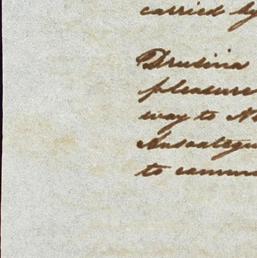 carried by
Drusina
pleasure
way to N
to commu